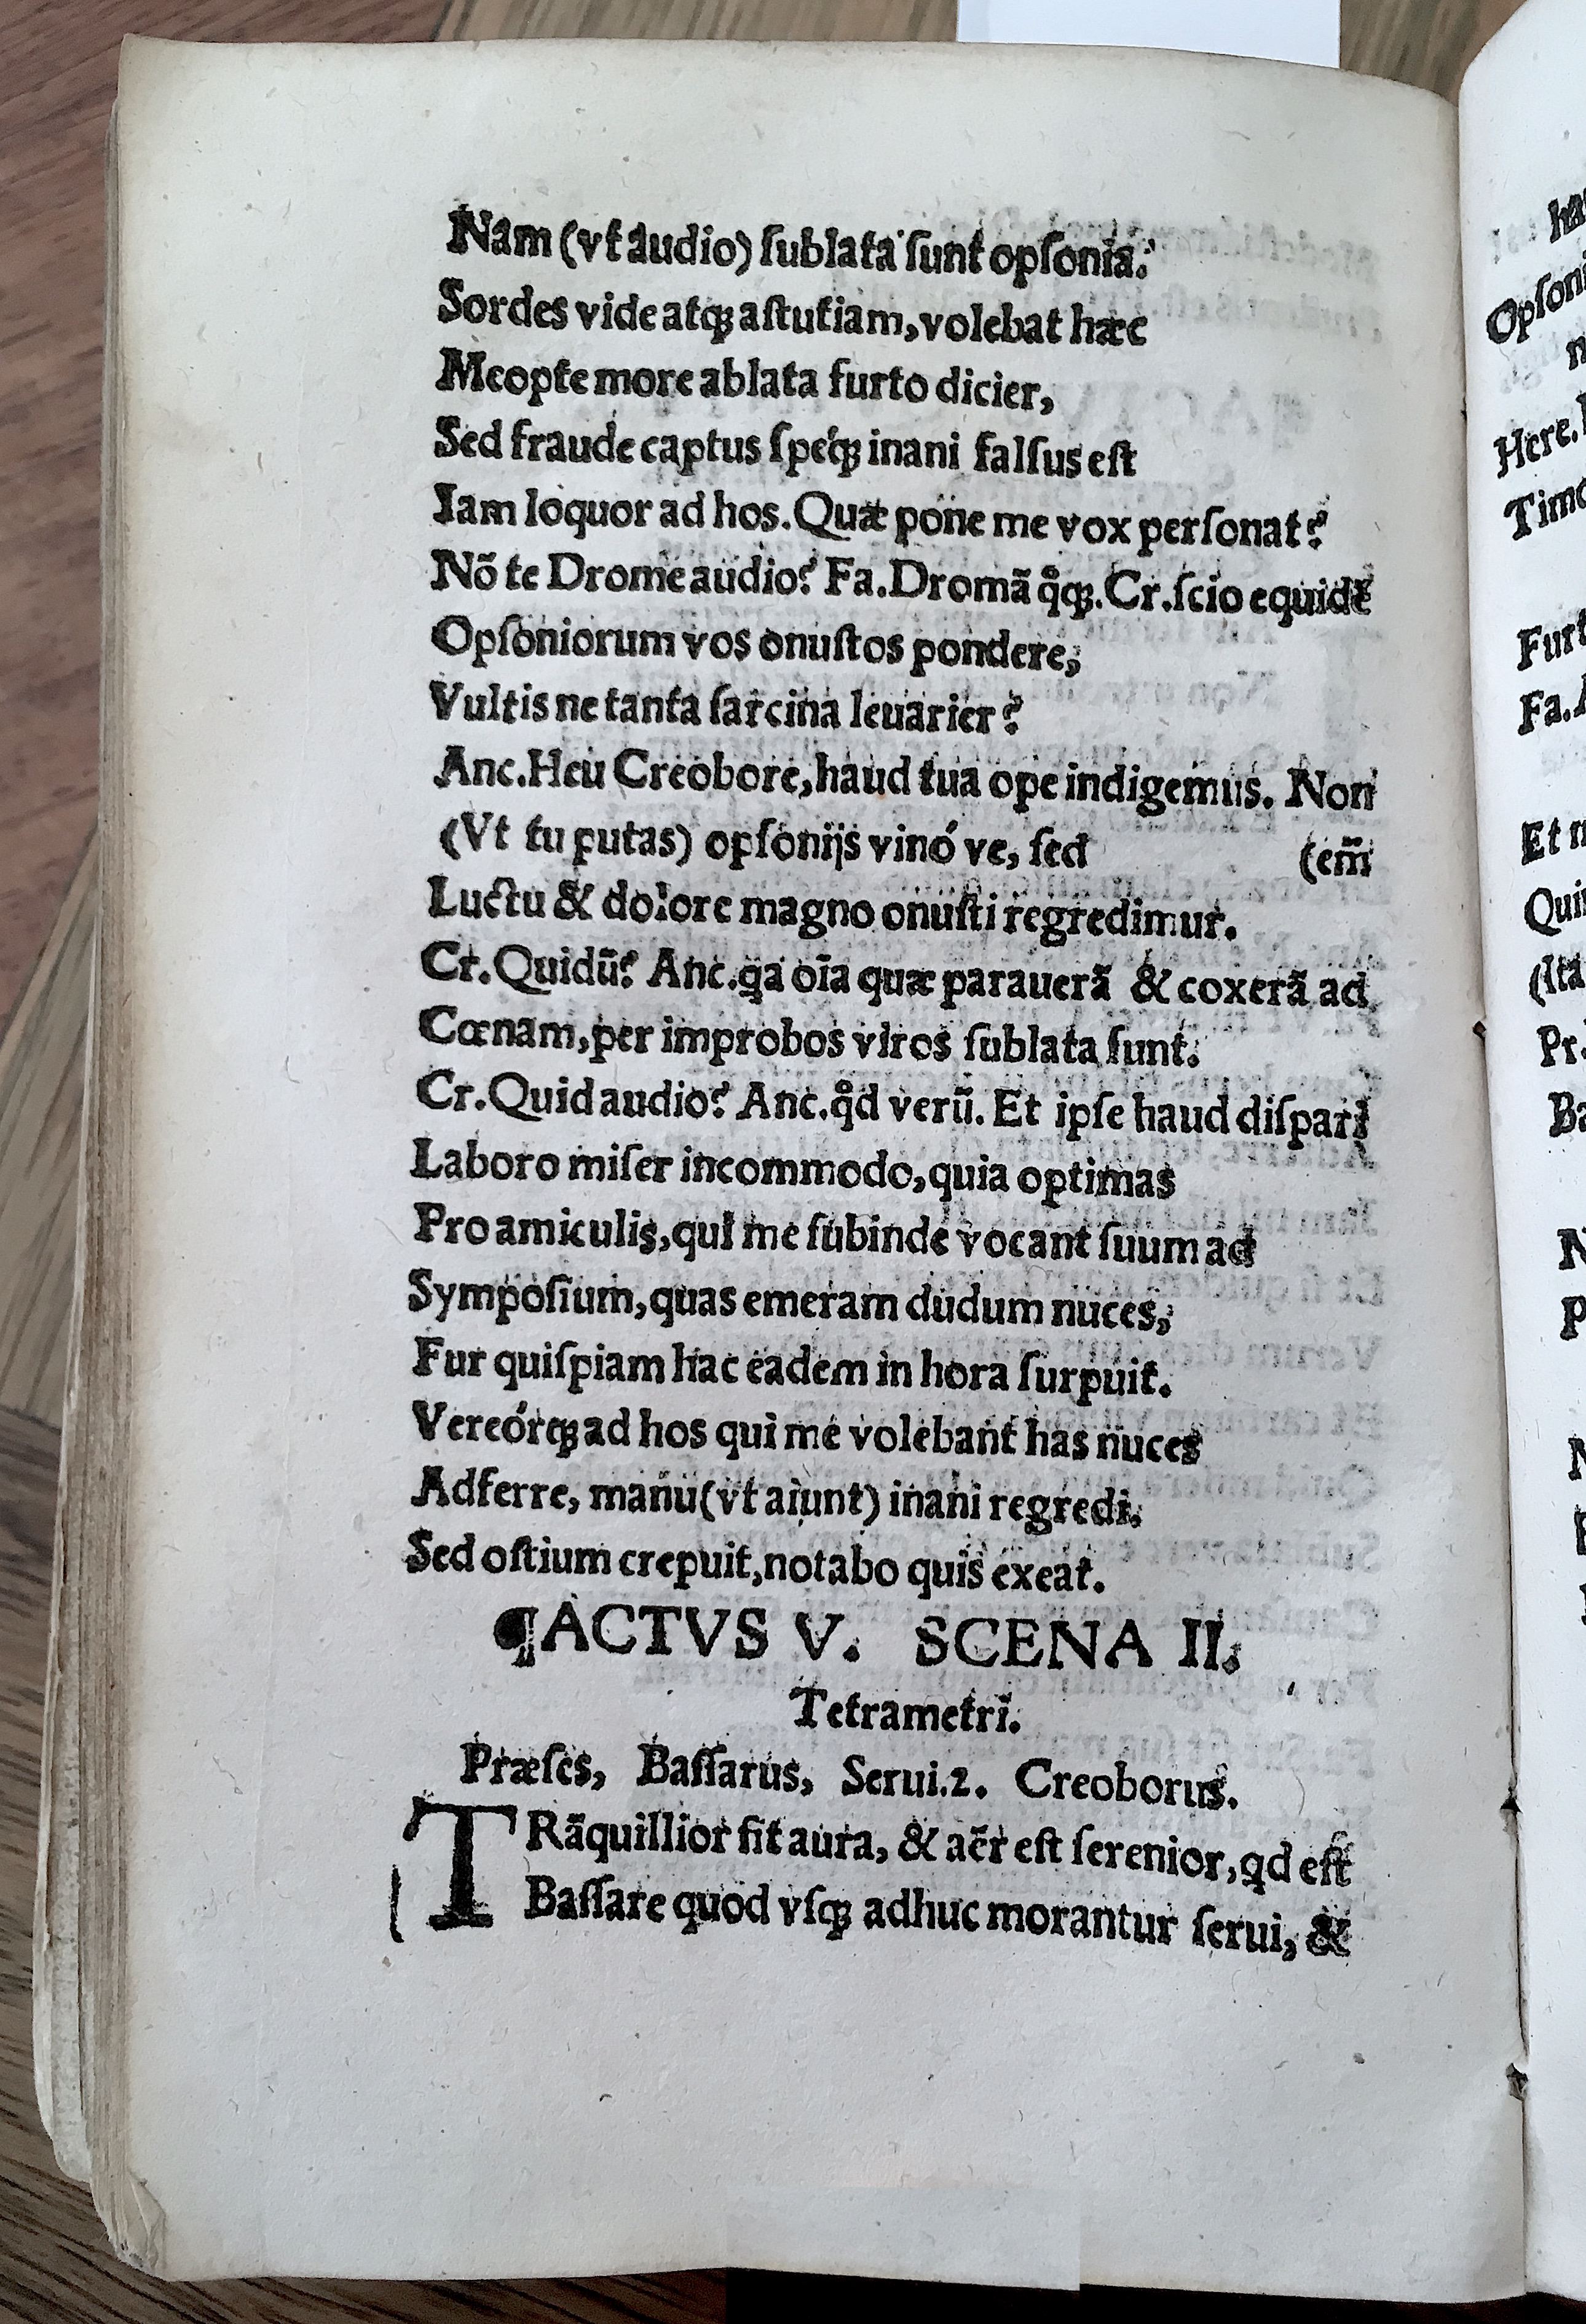 Nam (vt audio) ſublata ſunt opſonia.
Sordes vide atqꝫ aſtutiam, volebat hæc
Meopte more ablata furto dicier,
Sed fraude captus ſpéqꝫ inani falſus eſt
Iam loquor ad hos. Quæ pone me vox perſonat?
Nõ te Drome audio? Fa. Dromã qͦqꝫ. Cr. ſcio equidẽ
Opſoniorum vos onuſtos pondere,
Vultis ne tanta ſarcina leuarier?
Anc. Heu Creobore, haud tua ope indigemus. Non
(Vt tu putas) opſonijs vinó ve, ſed (em̃
Luctu & dolore magno onuſti regredimur.
Cr. Quidũ? Anc. ꝗa oĩa quæ parauerã & coxerã ad
Cœnam, per improbos viros ſublata ſunt.
Cr. Quid audio? Anc. qͦd verũ. Et ipſe haud diſpari
Laboro miſer incommodo, quia optimas
Pro amiculis, qui me ſubinde vocant ſuum ad
Sympoſium, quas emeram dudum nuces,
Fur quiſpiam hac eadem in hora ſurpuit.
Vereórqꝫ ad hos qui me volebant has nuces
Adferre, manu (vt aiunt) inani regredi.
Sed oſtium crepuit, notabo quis exeat.
¶ACTVS V. SCENA II.
Tetrametri.
Præſes, Baſſarus, Serui.2. Creoborus.
TRãquillior fit aura, & aẽr eſt ſerenior, ꝗd eſt
Baſſare quod vſqꝫ adhuc morantur ſerui, &
Opſoni
Here.
Furt
Fa.
Et
Quin
(Ita
Pr.
Ba